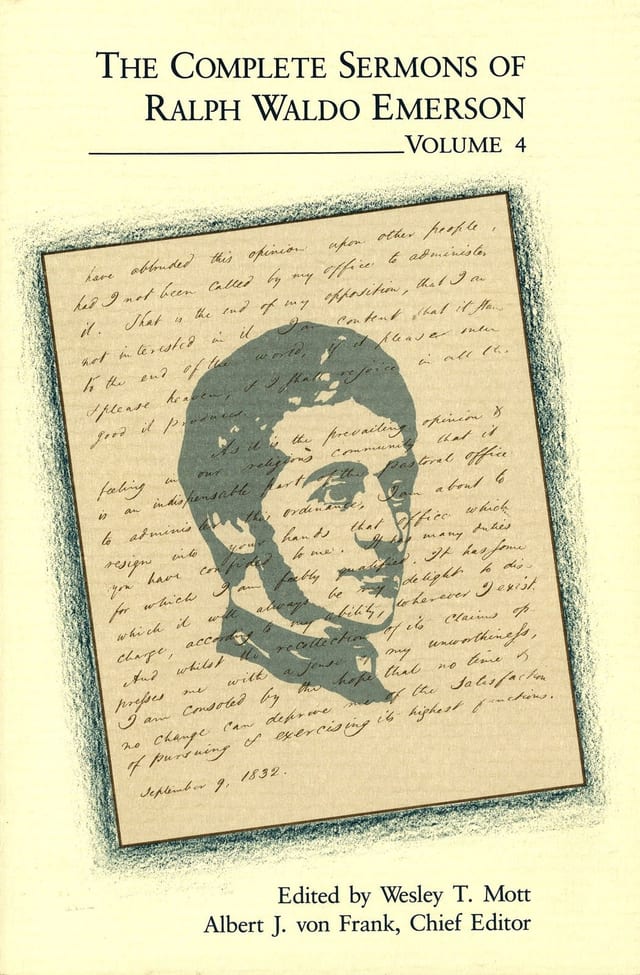 THE COMPLETE SERMONS OF
RALPH WALDO EMERSON
VOLUME 4
have obtruded this opinion upon other people,
had I not been called by my office to administer
it. That is the end of my opposition, that I am
not interested in it. I am content that it stan
to the end of the world, if it please men
& please heaven, & I shall rejoice in all the
good it produces.
As it is the prevailing opinion &
feeling in our religious community that it
is an indispensable part of the pastoral office
to administer this ordinance, I am about to
resign into your hands that office which
you have confided to me. It has many duties
for which I am feebly qualified. It has some
which it will always be my delight to dis-
charge, according to my ability, wherever I exist.
And whilst the recollection of its claims op-
presses me with a sense of my unworthiness,
I am consoled by the hope that no time &
no change can deprive me of the satisfaction
of pursuing & exercising its highest functions.
September 9, 1832.
Edited by Wesley T. Mott
Albert J. von Frank, Chief Editor